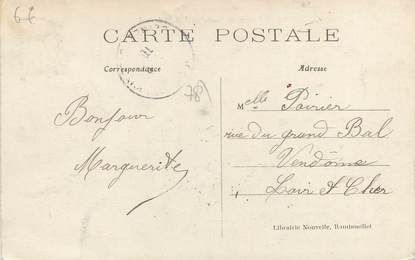 6€
CARTE POSTALE
Correspondance
Adresse
78)
Bonjour
Marguerite
Melle Poirier
rue du grand Bal
Vendôme
Loir & Cher
Librairie Nouvelle, Rambouillet